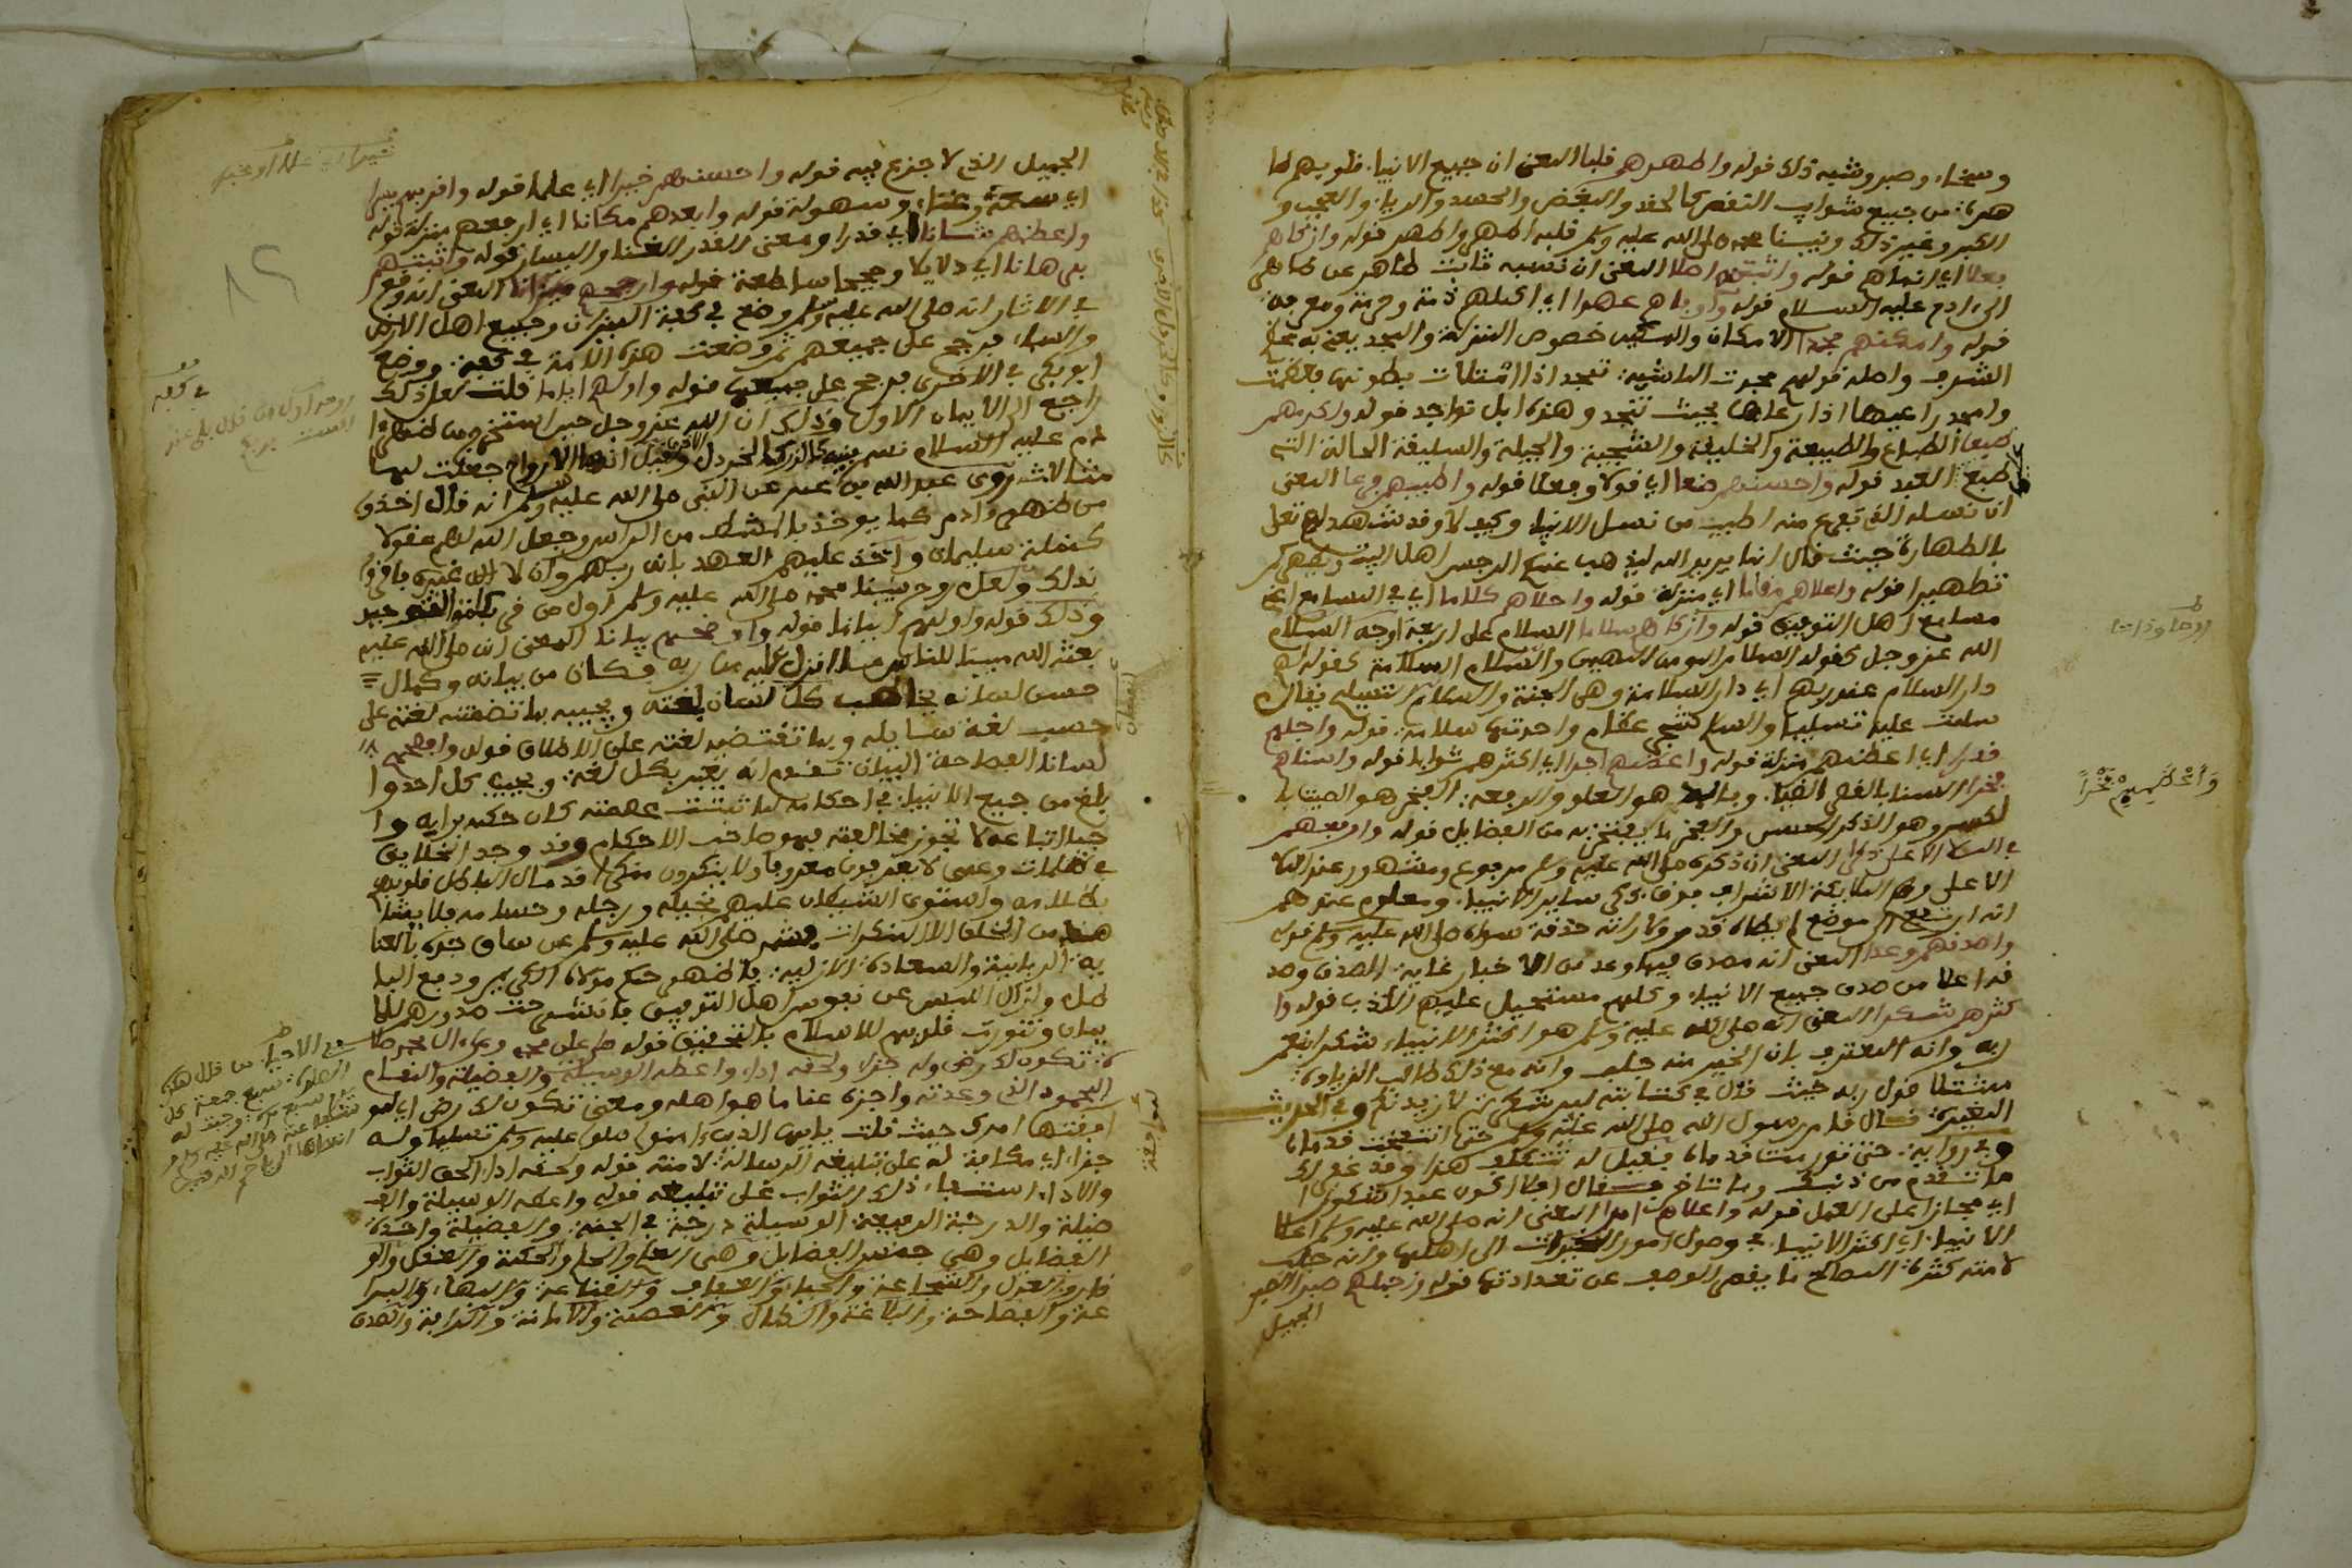 وسخاء وصبر وشبه ذلك قوله واطهرهم قلبا المعنى ان جميع الانبياء قلوبهم طا
هرة من جميع شوايب النقص كالحقد والبغض والحسد والرياء والعجب و
الكبر وغير ذلك ونبينا محمد صلى الله عليه وسلم قلبه اطهر واطهر قوله وازكاهم
فعلا اي انماهم قوله واثبتهم اصلا المعنى ان نسبه ثابت طاهر عن طاهر
الى ادم عليه السلام قوله واوفاهم عهدا اي اكملهم ذمة وحرمة ومعرفة
قوله وامكنهم مجدا الامكان والتمكين خصوص المنزلة والمجد يعني به محل
الشرف واصله قولهم مجدت الماشية تمجد اذا امتلات بطونها بالعلف
وامجد راعيها اذا رعاها بحيث تمجد وهذه ابل تواجد قوله واكرمهم
طبعا الطباع والطبيعة والخليقة والسجية والجبلة والسليقة الحالة التي
طبع العبد قوله واحسنهم صنعا اي قولا وفعلا قوله واطيبهم فرعا المعنى
ان نسله الذي تفرع منه اطيب من نسل الانبياء وكيف لا وقد شهد لهم تعالى
بالطهارة حيث قال انما يريد الله ليذهب عنكم الرجس اهل البيت ويطهركم
تطهيرا قوله واعلاهم مقاما اي منزلة قوله واحلاهم كلاما اي في المسامع اعني
مسامع اهل التوفيق قوله وازكاهم سلاما السلام على اربعة اوجه السلام
الله عز وجل كقوله السلام المومن المهيمن والسلام السلامة كقوله لهم
دار السلام عند ربهم اي دار السلامة وهي الجنة والسلام التسليم يقال
سلمت عليه تسليما والسلام شجر عظام واحدتها سلامة قوله واجلهم
قدرا اي اعظمهم منزلة قوله واعظمهم اجرا اي اكثرهم ثوابا قوله واسناهم
فخرا السنا بالقصر الضياء وبالمد هو العلو والرفعة الفخر هو الصيت با
لكسر وهو الذكر الحسن والفخر ما يفتخر به من الفضايل قوله وارفعهم
في الملا الاعلى ذكرا المعنى ان ذكره صلى الله عليه وسلم مرفوع ومشهور عند الملا
الاعلى وهم الملايكة الاشراف فوق ذكر ساير الانبياء ومعلوم عندهم
انه ارتفع الى موضع لم يطاه قدم ولا رأته حدقة سواه صلى الله عليه وسلم قوله
واصدقهم وعدا المعنى انه صدق فيما وعد من الاخبار غاية الصدق وصد
قه اعلا من صدق جميع الانبياء وكلهم مستحيل عليهم الكذب قوله وا
كثرهم شكرا المعنى انه صلى الله عليه وسلم هو اكثر الانبياء شكرا لنعم
ربه وانه المعترف بان الخير منه جلب وانه مع ذلك طالب الزيادة
ممتثلا قول ربه حيث قال في كتابه لين شكرتم لازيدنكم وفي الحديث
المغيرة قال قام رسول الله صلى الله عليه وسلم حتى انتفخت قدماه
وفي رواية حتى تورمت قدماه فقيل له تتكلف هذا وقد غفر لك
ما تقدم من ذنبك وما تاخر فقال افلا اكون عبدا شكورا
اي مجازا على العمل قوله واعلاهم امرا المعنى انه صلى الله عليه وسلم اعلا
الانبياء اي اكثر الانبياء في وصول امور الخيرات الى اهلها وانه جلب
لامته كثرة المصالح ما يقصر الوصف عن تعدادتها قوله واجملهم صبرا الصبر
الجميل
الجميل الذي لا جزع فيه قوله واحسنهم خيرا اي علما قوله واقربهم يسرا
اي سعة وغناء وسهولة قوله وابعدهم مكانا اي ارفعهم منزلة قوله
واعظمهم شانا اي قدرا ومعنى القدر الغنا واليسار قوله واثبتهم
برهانا اي دلايلا وحججا ساطعة قوله وارجحهم ميزانا المعنى انه وقع
في الاثار انه صلى الله عليه وسلم وضع في كفة الميزان وجميع اهل الارض
والسماء فرجح على جميعهم ثم وضعت هذه الامة في كفة ووضع
ابو بكر في الاخرى فرجح على جميعها قوله واولهم ايمانا قلت لعل ذلك
راجع الى الايمان الاول وذلك ان الله عز وجل حين استخرج من صلب ا
دم عليه السلام نسم بنيه كالذر كالخردل وقيل انها الارواح جعلت لها
مثالات روى عبد الله بن عمر عن النبي صلى الله عليه وسلم انه قال اخذوا
من ظهر ادم كما يوخذ بالمشط من الراس وجعل الله لهم عقولا
كنملة سليمان واخذ عليهم العهد بانه ربهم وان لا اله غيره فاقروا
بذلك ولعل روح نبينا محمد صلى الله عليه وسلم اول من قر بكلمة التوحيد
وذلك قوله واولهم ايمانا قوله واوضحهم بيانا المعنى انه صلى الله عليه
بعثه الله مبينا للناس ما انزل اليه من ربه فكان من بيانه وكمال
حسن لسانه يخاطب كل لسان بلغته ويجيبه بما تضمنته لغته على
حسب لغة سايله وبما تقتضيه لغته على الاطلاق قوله وافصحهم
لسانا الفصاحة البيان تقدم انه يعبر بكل لغة ويجيب كل احد وا
بلغ من جميع الانبياء في احكامه لما ثبتت عصمته كان حكمه برايه وا
جبا اتباعه لا تجوز مخالفته فهو صاحب الاحكام وقد وجد الخلايق
في ظلمات وعمى لا يعرفون معروفا ولا ينكرون منكرا قد مال الباطل قلوبهم
بظلامه واستوى الشيطان عليهم بخيله ورجله وحسامه فلا ينشا
عنهم من الخلق الا المنكرات فشمر صلى الله عليه وسلم عن ساق جده بالعنا
ية الربانية والسعادة الازلية فاظهر حكم مولاه الكريم ودمغ البا
طل وازال اللبس عن نفوس اهل التوفيق فانشرحت صدورهم للا
يمان وتنورت قلوبهم للاسلام بالتحقيق قوله صل على محمد وعلى ال محمد صلا
ة تكون لك رضى وله جزاء ولحقه اداء واعطه الوسيلة والفضيلة والمقام
المحمود الذي وعدته واجزه عنا ما هو اهله ومعنى تكون لك رضى اي لمو
افقتها امرك حيث قلت يايها الذين امنوا صلوا عليه وسلموا تسليما وله
جزاء اي مكافاة له على تبليغه الرسالة لامته قوله ولحقه اداء الحق الثواب
والاداء استيفاء ذلك الثواب على تبليغه قوله واعطه الوسيلة والفـ
ضيلة والدرجة الرفيعة الوسيلة درجة في الجنة والفضيلة واحدة
الفضايل وهي جنس الفضايل وهي العلم والحلم والحكمة والعقل والو
قار والعدل والشجاعة والحياء والعفاف والقناعة والبهاء والبرا
عة والفصاحة والبلاغة والكمال والعصمة والامانة والدراية والصدق
وَأَعْظَمِهِمْ فَخْراً
في كفة